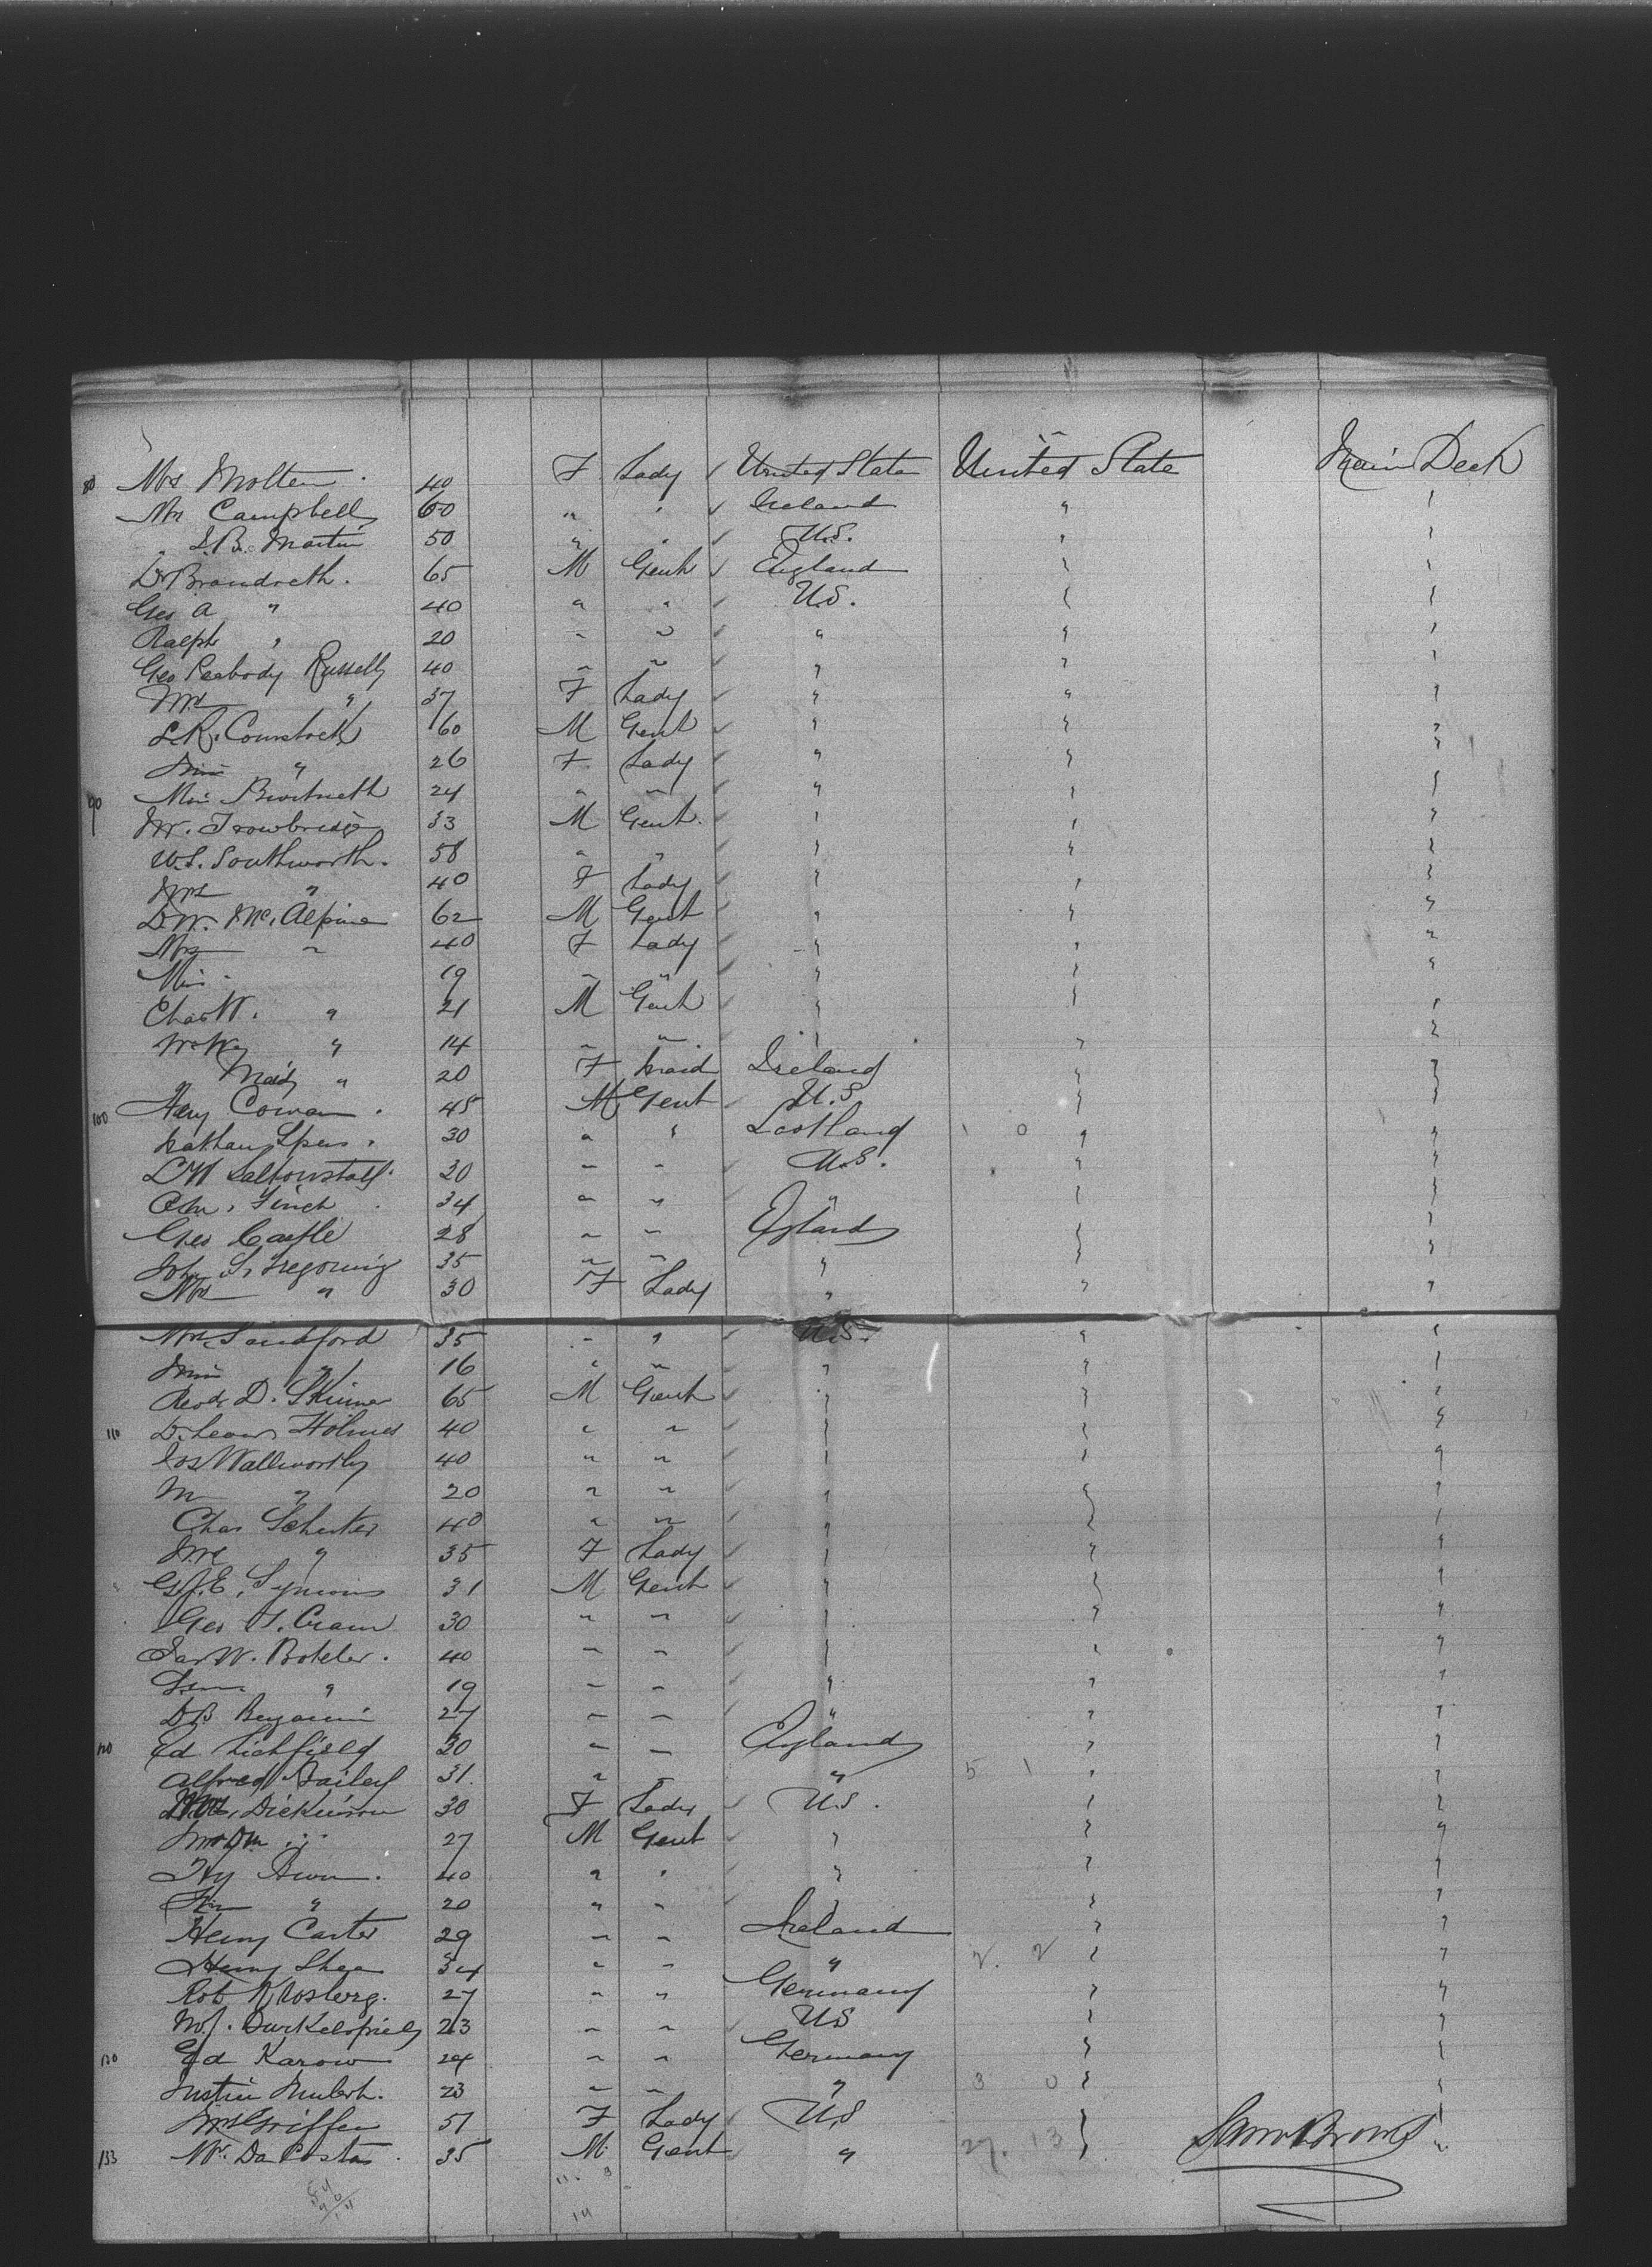 80 Mrs Molten . 40 F Lady ✓ United State United State Main Deck
Mrs Campbell 60 " " ✓ Ireland " "
" S.B. Martin 50 " " ✓ U.S. " "
Dr Brandreth . 65 M Gent ✓ England " "
Geo A " 40 " " ✓ U.S. " "
Ralph " 20 " " ✓ " " "
Geo Peabody Russell 40 " " ✓ " " "
Mrs " 37 F Lady ✓ " " "
L.R. Comstock 60 M Gent ✓ " " "
Miss " 26 F Lady ✓ " " "
90 Miss 24 " " ✓ " " "
Mr. Trowbridge 33 M Gent. ✓ " " "
W.S. Southworth. 58 " " ✓ " " "
Mrs " 40 F Lady ✓ " " "
D.W. McAlpine 62 M Gent ✓ " " "
Mrs " 40 F Lady ✓ " " "
Miss " 19 " " ✓ " " "
Chas W. " 21 M Gent ✓ " " "
" 14 " " " " "
Maid " 20 F Maid Ireland " "
100 Hery Cowan . 45 M Gent U.S " "
Nathan Spens . 30 " " Scotland 1 0 " "
Saltonstall. 30 " " ✓ U.S. " "
Finch . 34 " " ✓ " " "
Geo Castle 28 " " England " "
John S. Tregoning 35 " " " " "
Mrs " 30 F Lady " " "
Mrs Sandford 35 " " ✓ U.S. " "
Miss " 16 " " ✓ " " "
D. Skinner 65 M Gent ✓ " " "
110 Holmes 40 " " ✓ " " "
Jos Wallworthy 40 " " ✓ " " "
M " 20 " " ✓ " " "
Chas Schuster 40 " " ✓ " " "
Mrs " 35 F Lady ✓ " " "
Symons 31 M Gent ✓ " " "
Geo T. Cram 30 " " ✓ " " "
Jas W. Boteler . 40 " " ✓ " " "
" 19 " " ✓ " " "
D B Benjamin 27 " " ✓ " " "
120 Ed Lichfield 30 " " England " "
Alfred Bailey 31. " " " 5 1 " "
Mrs. Dickinson 30 F Lady ✓ U.S. " "
" 27 M Gent ✓ " " "
Hy 40 " " ✓ " " "
" 20 " " ✓ " " "
Henry Carter 29 " " Ireland " "
Henry Shea 34 " " " 2. 2 " "
Rob 27 " " Germany " "
23 " " ✓ U S " "
130 Ed Karow 24 " " Germany " "
Justin 23 " " " 3 0 " "
Mrs Griffen 51 F Lady ✓ U.S " "
133 Mr. Da Costa . 35 M Gent ✓ " 27. 13 " "
Sam Brooks
11. 3
14